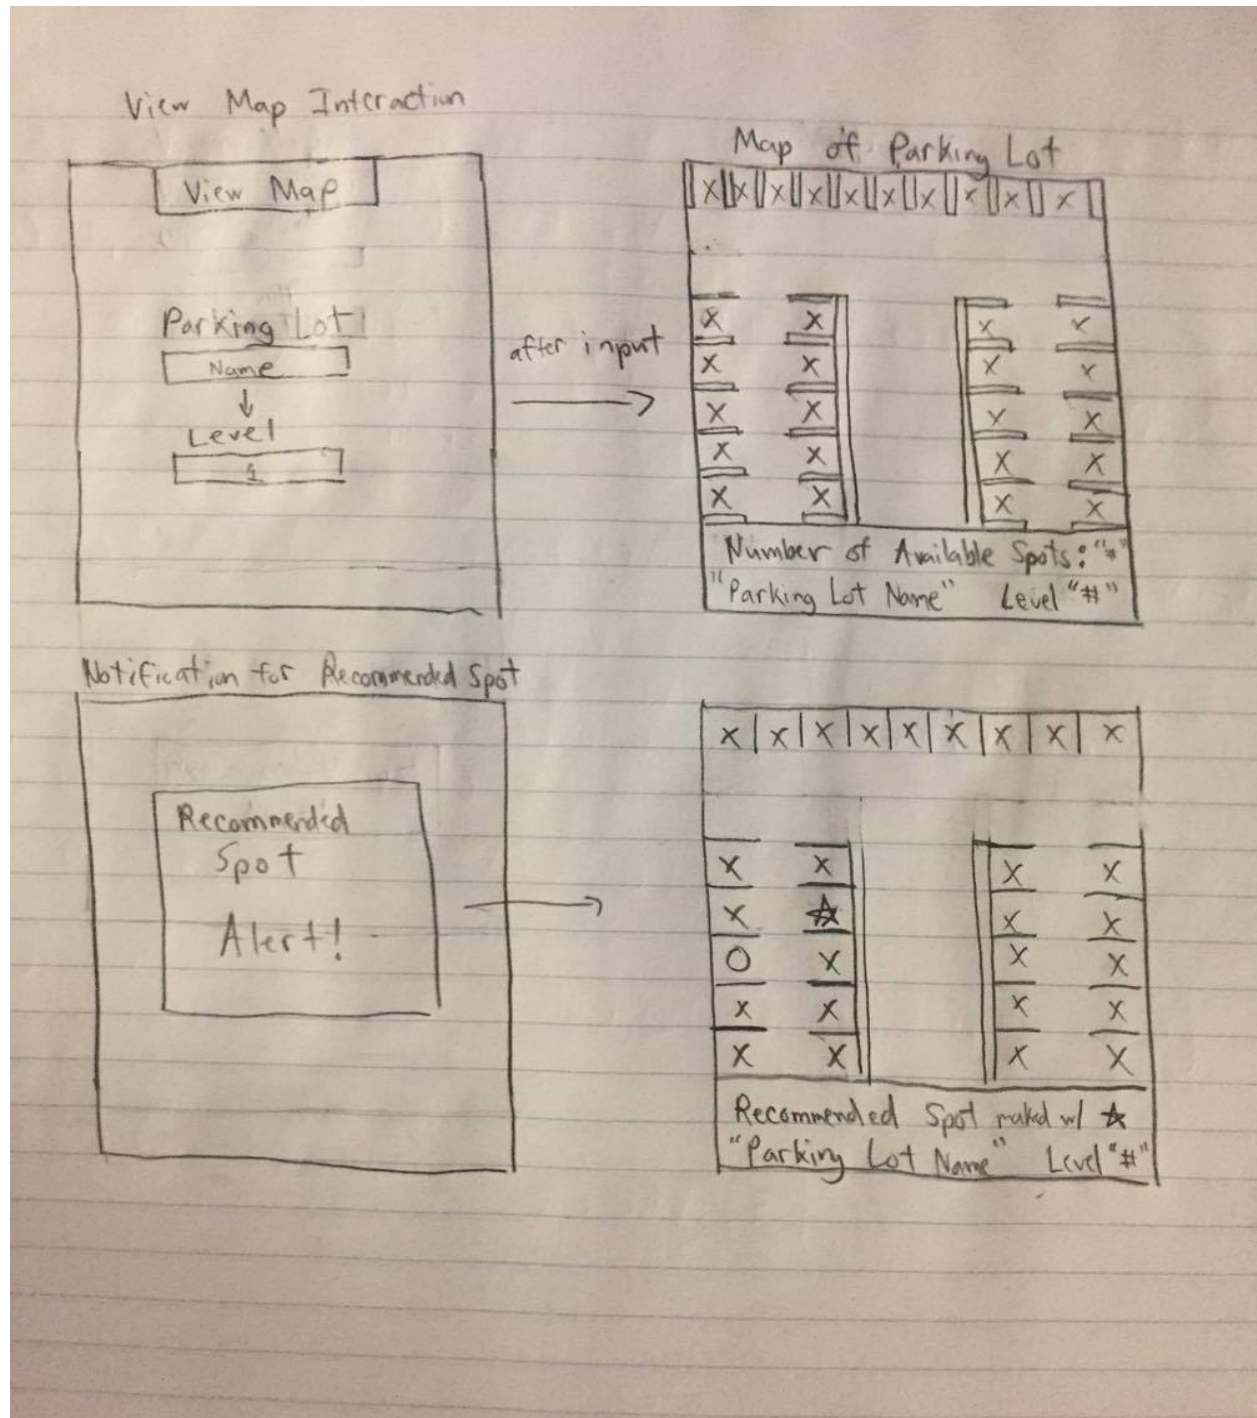 View Map Interaction
View Map
Parking Lot
Name
Level
1
after input
Map of Parking Lot
X X X X X X X X X
X X X X
X X X X
X X X X
X X X X
X X X X
Number of Available Spots: "#"
"Parking Lot Name" Level "#"
Notification for Recommended Spot
Recommended
Spot
Alert!
X X X X X X X X X
X X X X
X ☆ X X
O X X X
X X X X
X X X X
Recommended Spot marked w/ ☆
"Parking Lot Name" Level "#"